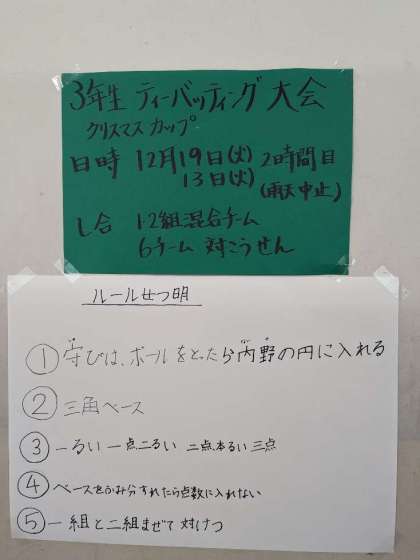 3年生 ティーバッティング 大会
クリスマス カップ
日時 12月19日(火) 2時間目
13日(火) (雨天中止)
し合 1・2組混合チーム
6チーム 対こうせん
ルールせつ明
① 守びは、ボールをとったら内野の円に入れる
② 三角ベース
③ 一るい 一点 二るい 二点 本るい 三点
④ ベースをふみ分すれたら点数に入れない
⑤ 一組と二組まぜて 対けつ